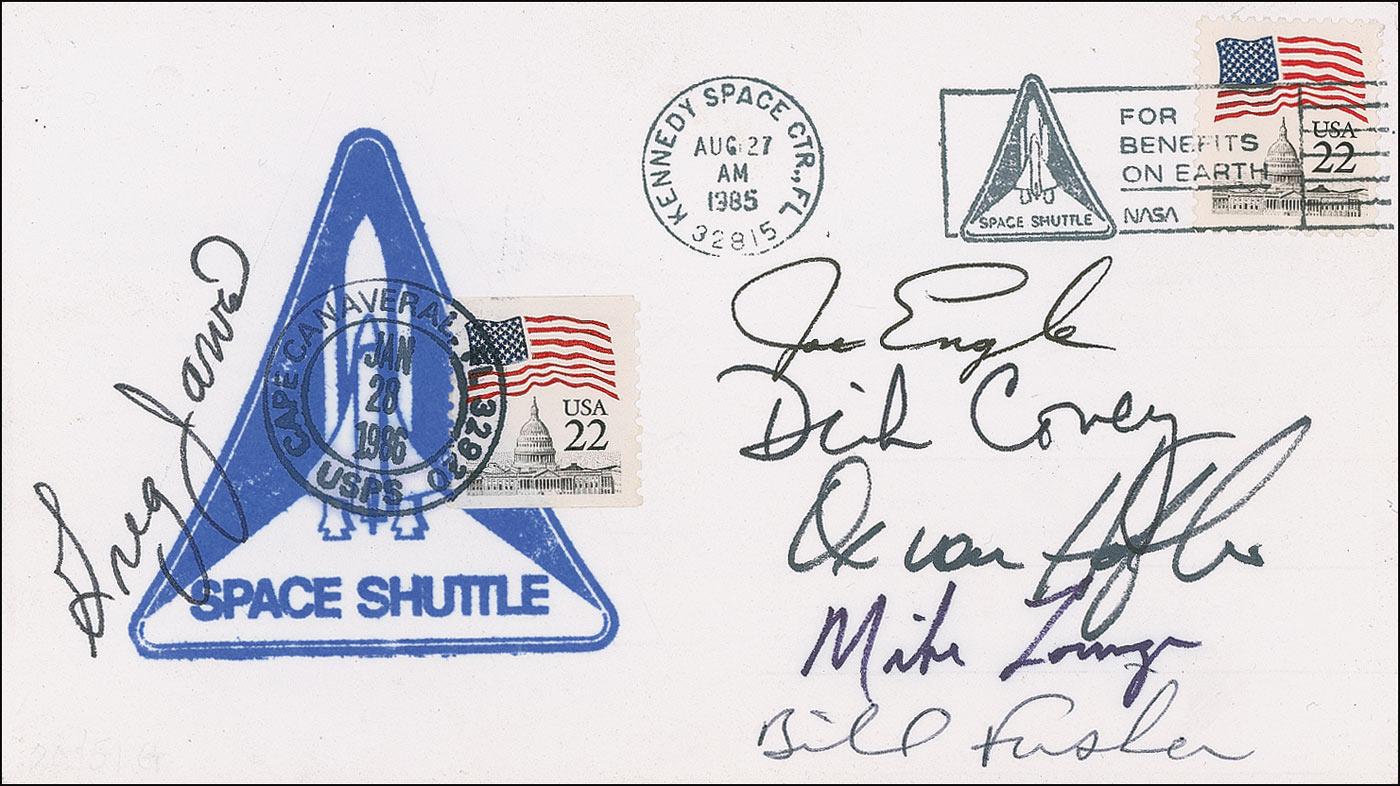 KENNEDY SPACE CTR., FL
AUG 27
AM
1985
32815
SPACE SHUTTLE
FOR
BENEFITS
ON EARTH
NASA
USA
22
Greg Jarvis
CAPE CANAVERAL, FL 32920
JAN
28
1986
USPS
USA
22
SPACE SHUTTLE
Joe Engle
Dick Covey
Ox van Hoften
Mike Lounge
Bill Fisher